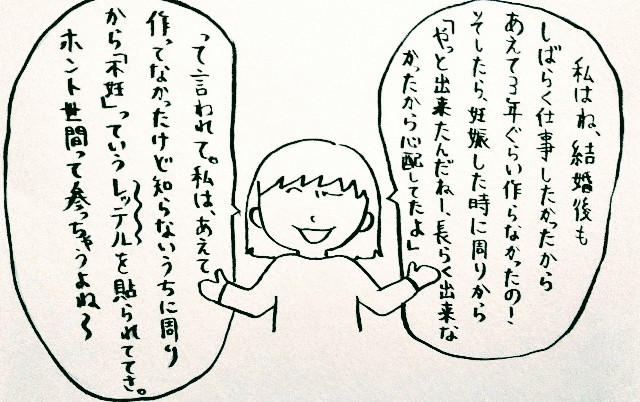 私はね、結婚後も
しばらく仕事したかったから
あえて3年ぐらい作らなかったの！
そしたら、妊娠した時に周りから
「やっと出来たんだねー、長らく出来な
かったから心配してたよ」
って言われて。私は、あえて
作ってなかったけど知らないうちに周り
から「不妊」っていうレッテルを貼られててさ。
ホント世間って参っちゃうよね〜